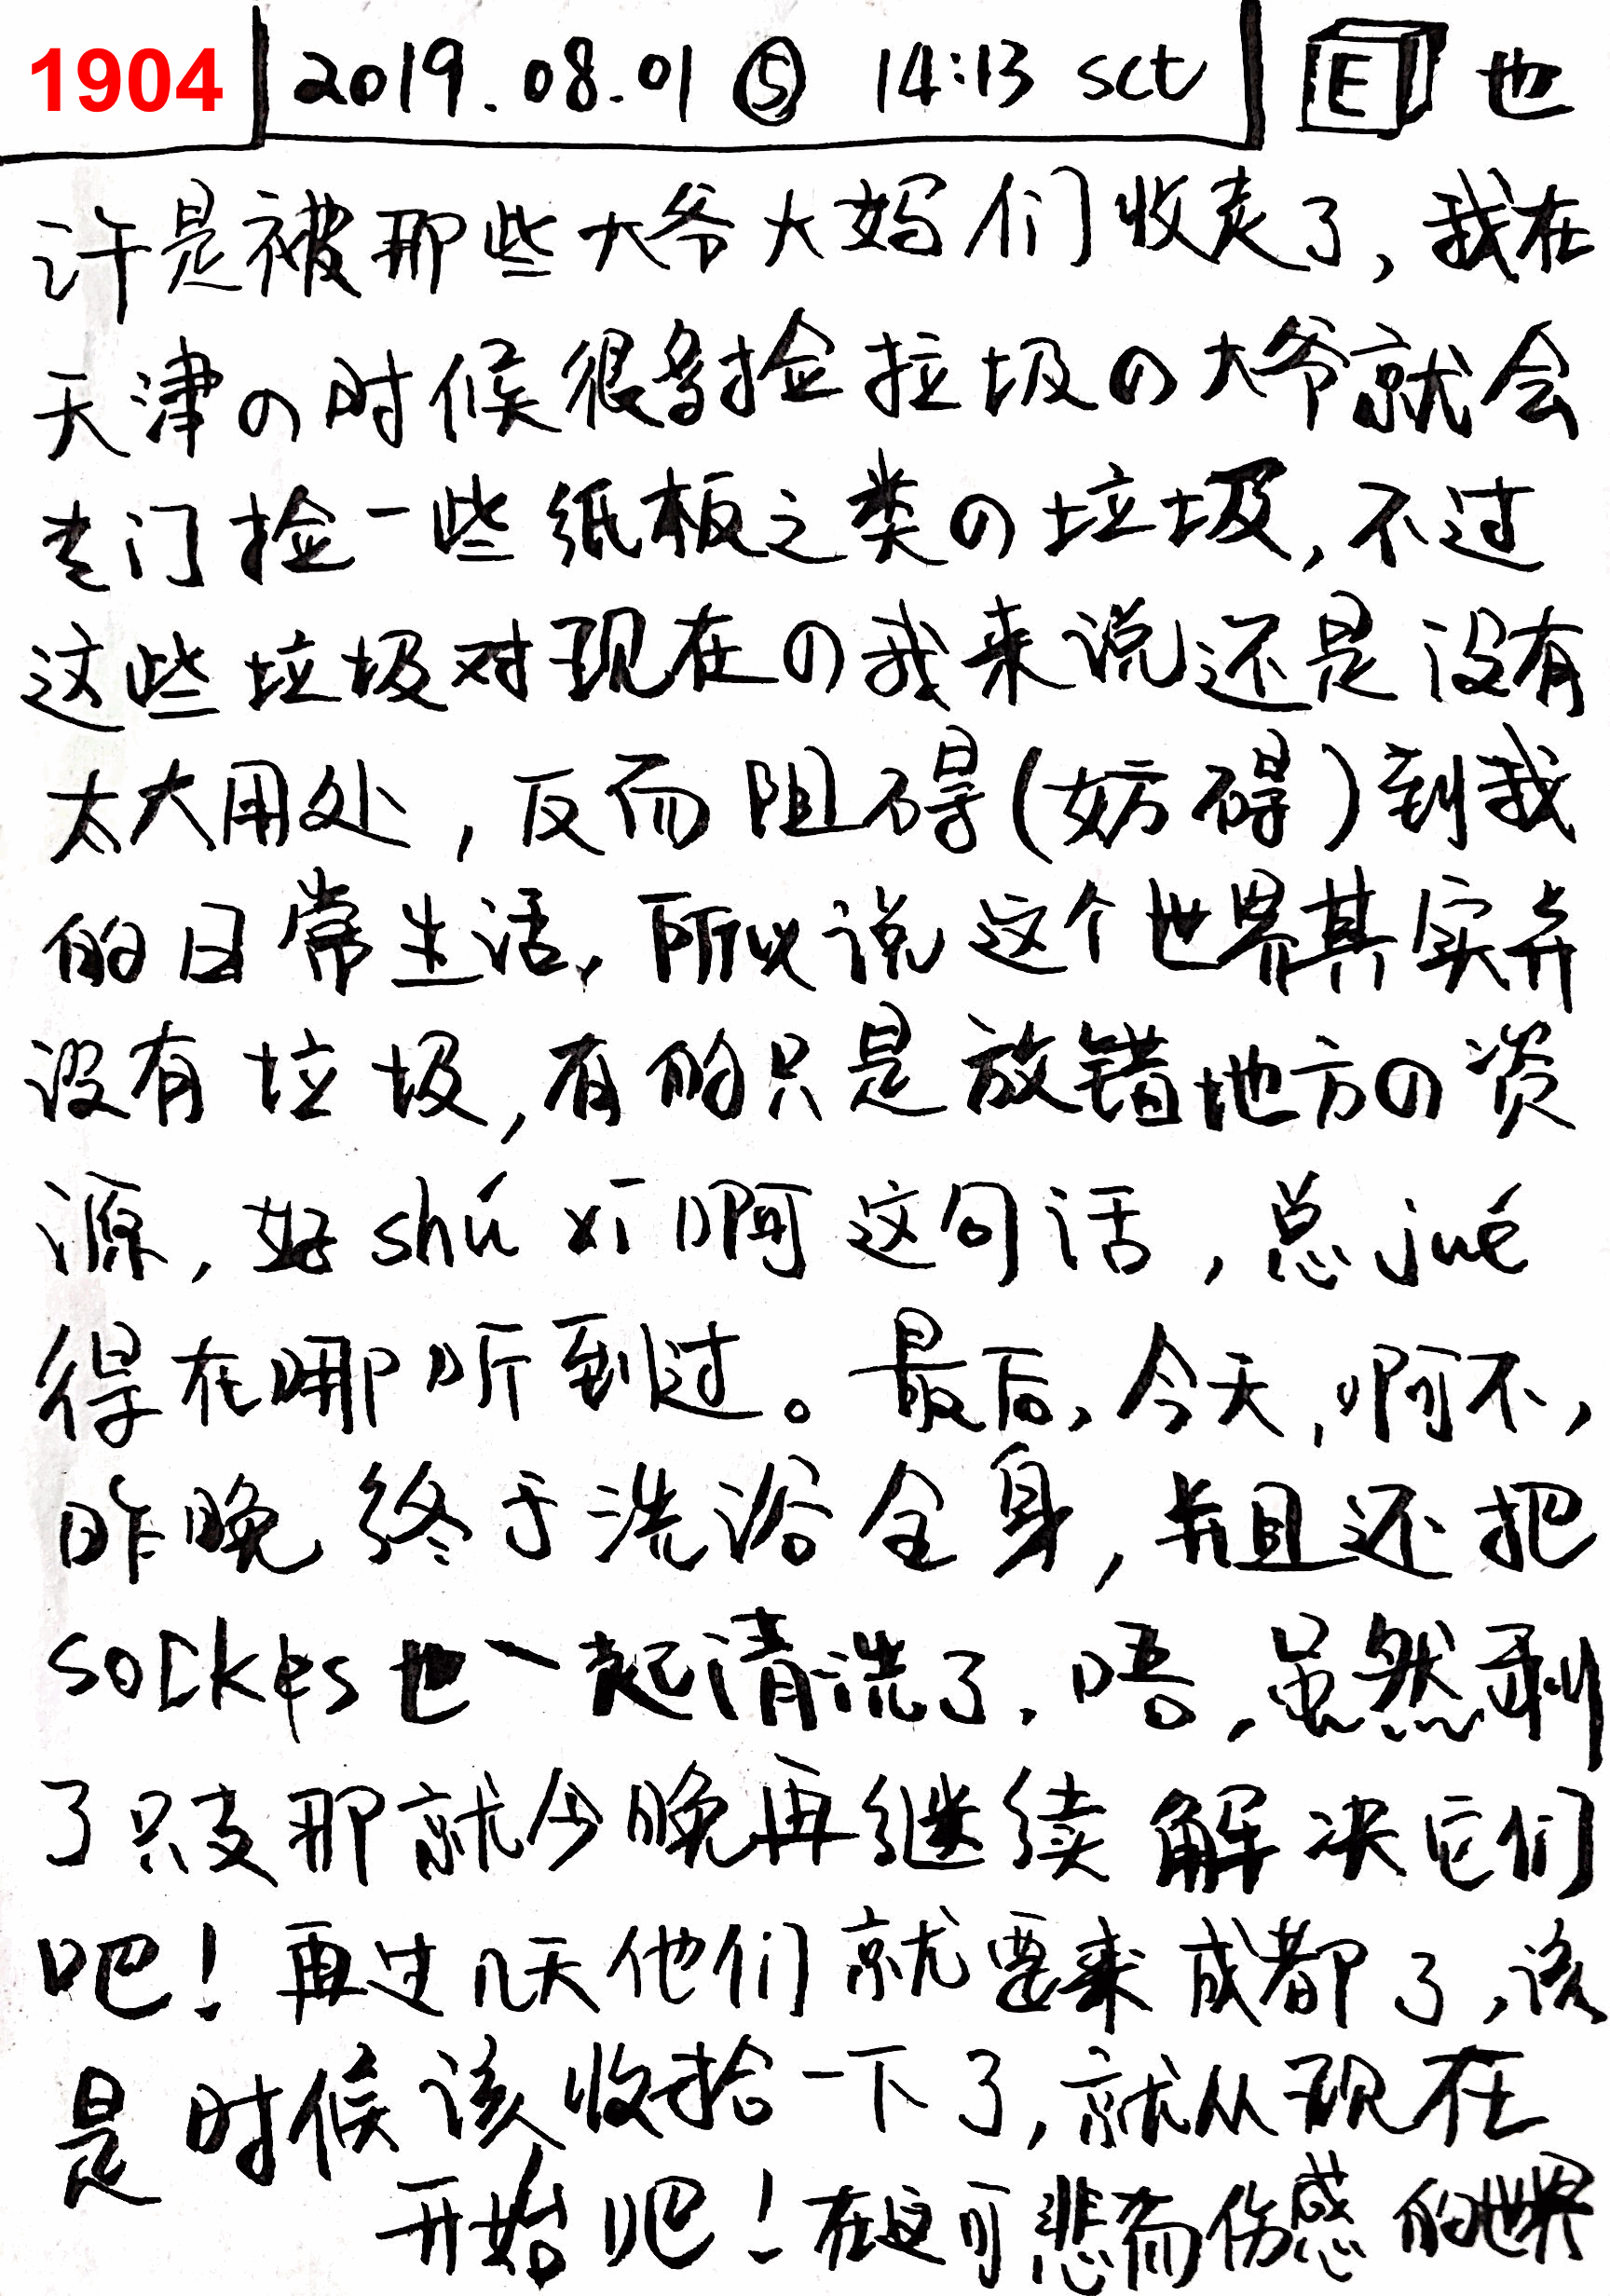 1904 2019.08.01 ⑤ 14:13 sct E 也
许是被那些大爷大妈们收走了,我在
天津の时候很多捡垃圾の大爷就会
专门捡一些纸板之类の垃圾,不过
这些垃圾对现在の我来说还是没有
太大用处,反而阻碍(妨碍)到我
的日常生活,所以说这个世界其实并
没有垃圾,有的只是放错地方の资
源,好shú xī啊这句话,总jué
得在哪听到过。最后,今天,啊不,
昨晚终于洗浴全身,并且还把
socks也一起清洗了.唔,虽然剩
了只支那就今晚再继续解决它们
吧!再过几天他们就要来成都了,该
是时候该收拾一下了,就从现在
开始吧!在这可悲而伤感的世界